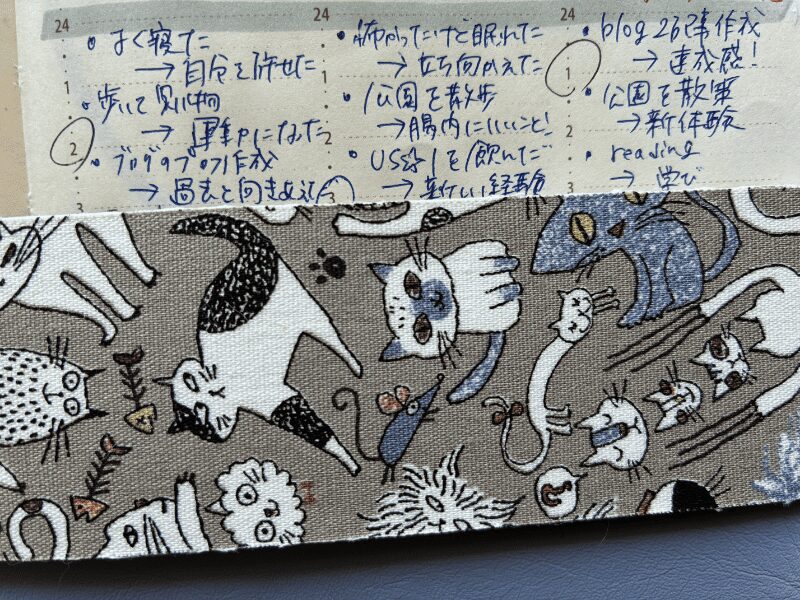 24
・よく寝た
→自分を許せた
1
・歩いて買い物
→運動になった
2
・ブログのプロフ作成
→過去と向きあえた
3
24
・怖かったけど眠れた
→立ち向かえた
1
・公園を散歩
→腸内にいいこと!
2
・を飲んだ
→新しい経験
3
24
・blog 26記事作成
→達成感!
1
・公園を散策
→新体験
2
・reading
→学び
3